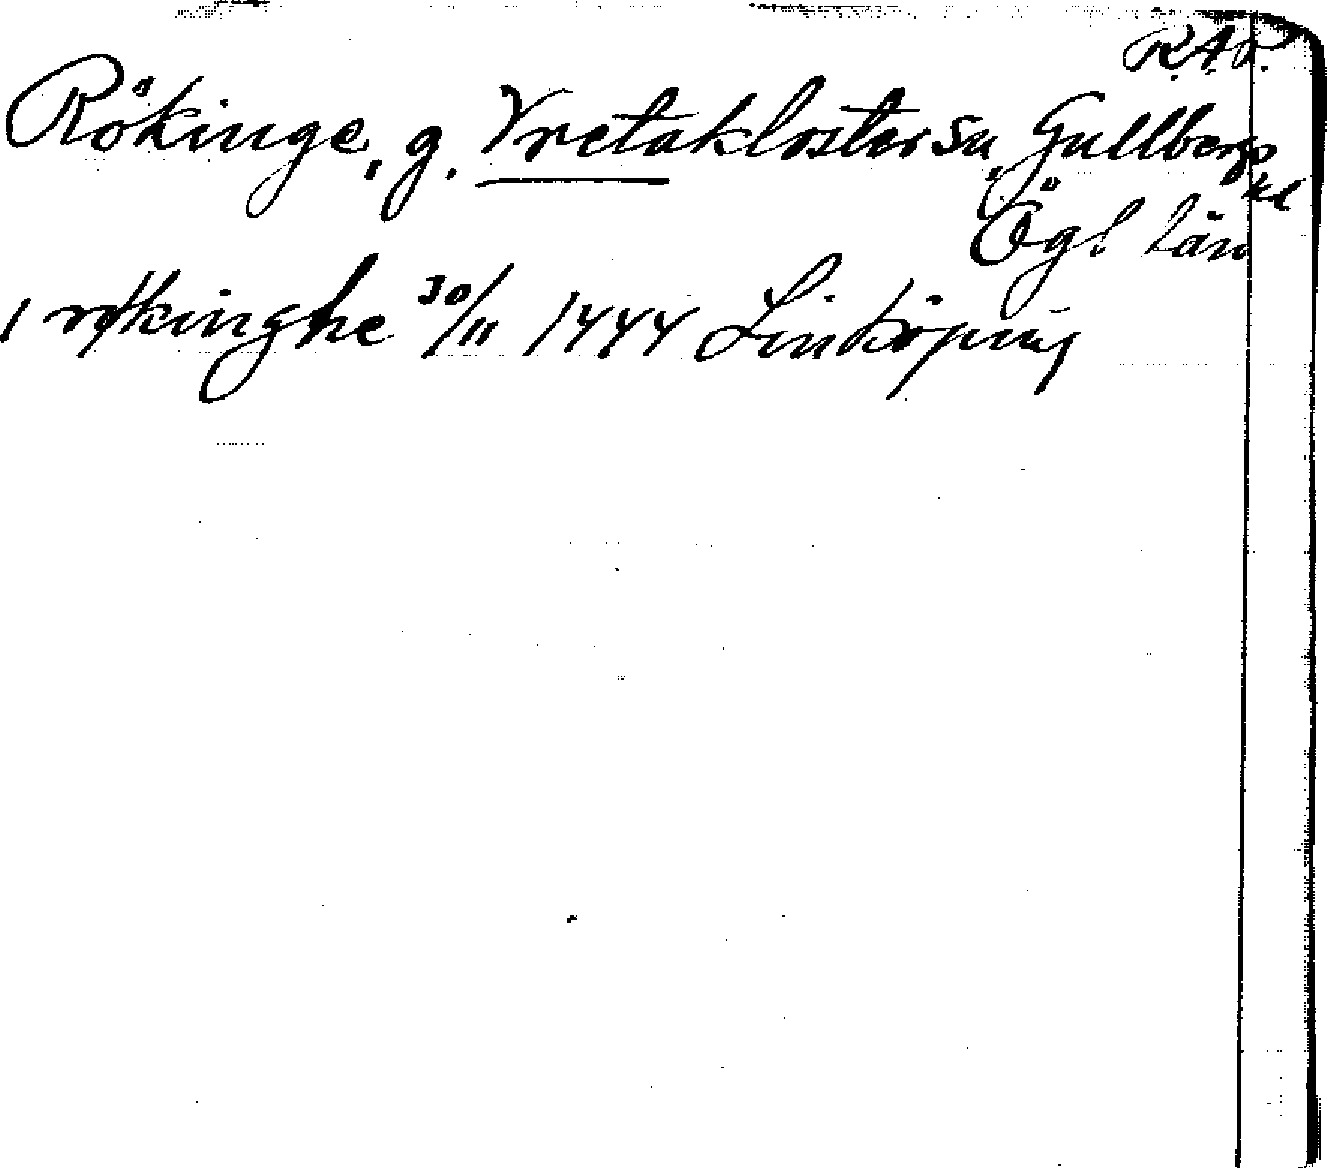 R.A.P.
Rökinge, g. Vretaklosters sn, Gullbergs hd
Ögl län
i røkinghe 30/11 1444 Linköping